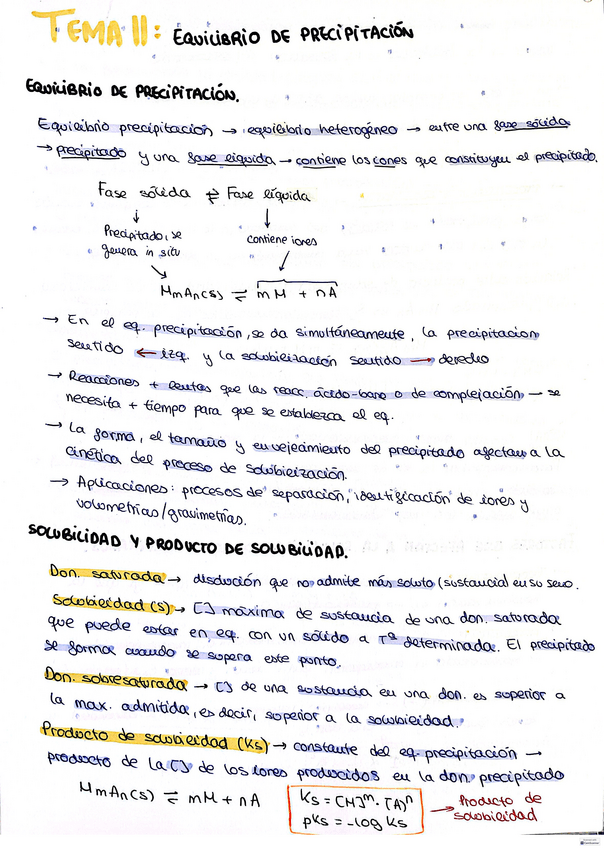 TEMA 11: EQUILIBRIO DE PRECIPITACIÓN
EQUILIBRIO DE PRECIPITACIÓN.
Equilibrio precipitación → equilibrio heterogéneo → entre una fase sólida
→ precipitado y una fase líquida → contiene los iones que constituyen el precipitado.
Fase sólida ⇌ Fase líquida
↓ ↓
Precipitado, se contiene iones
genera in situ
MmAn(s) ⇌ mM + nA
→ En el eq. precipitación, se da simultáneamente, la precipitacion
sentido ← izq. y la solubilización sentido → derecho
→ Reacciones + lentas que las reacc. ácido-base o de complejación — se
necesita + tiempo para que se establezca el eq.
→ La forma, el tamaño y envejeamiento del precipitado afectan a la
cinética del proceso de solubilización.
→ Aplicaciones: procesos de separación, identificación de iones y
volumetrías/gravimetrías.
SOLUBILIDAD Y PRODUCTO DE SOLUBILIDAD.
Don. saturada → disolución que no admite más soluto (sustancia) en su seno.
Solubilidad (s) → [] máxima de sustancia de una don. saturada
que puede estar en eq. con un sólido a Tª determinada. El precipitado
se forma cuando se supera este punto.
Don. sobresaturada → [] de una sustancia en una don. es superior a
la max. admitida, es decir, superior a la solubilidad.
Producto de solubilidad (Ks) → constante del eq. precipitación →
producto de la [] de los iones producidos en la don. precipitado
MmAn(s) ⇌ mM + nA
Ks = [M]ᵐ · [A]ⁿ → Producto de
pKs = -log Ks solubilidad